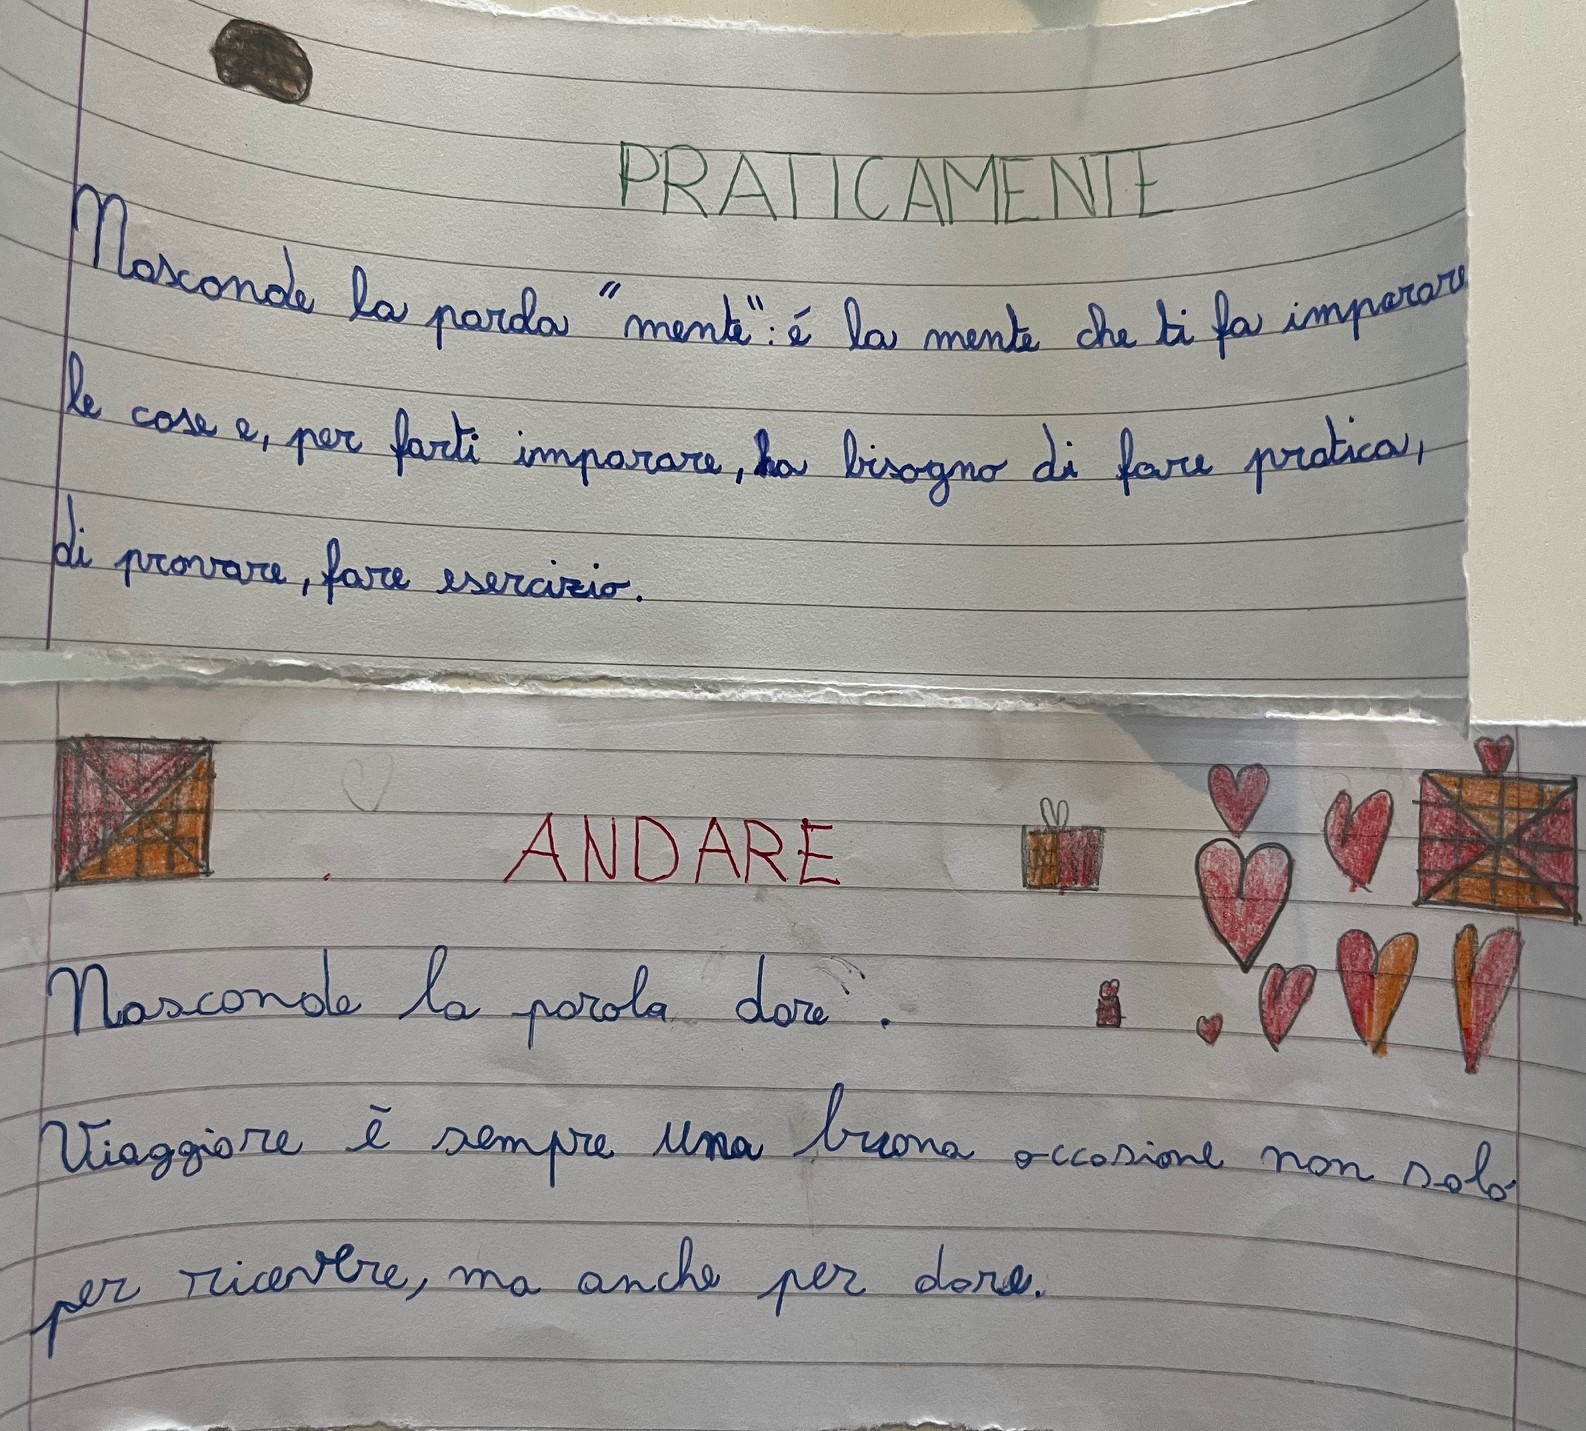 PRATICAMENTE
Nasconde la parola "mente": é la mente che ti fa imparare
le cose e, per farti imparare, ha bisogno di fare pratica,
di provare, fare esercizio.
ANDARE
Nasconde la parola dare".
Viaggiare è sempre una buona occasione non solo
per ricevere, ma anche per dare.